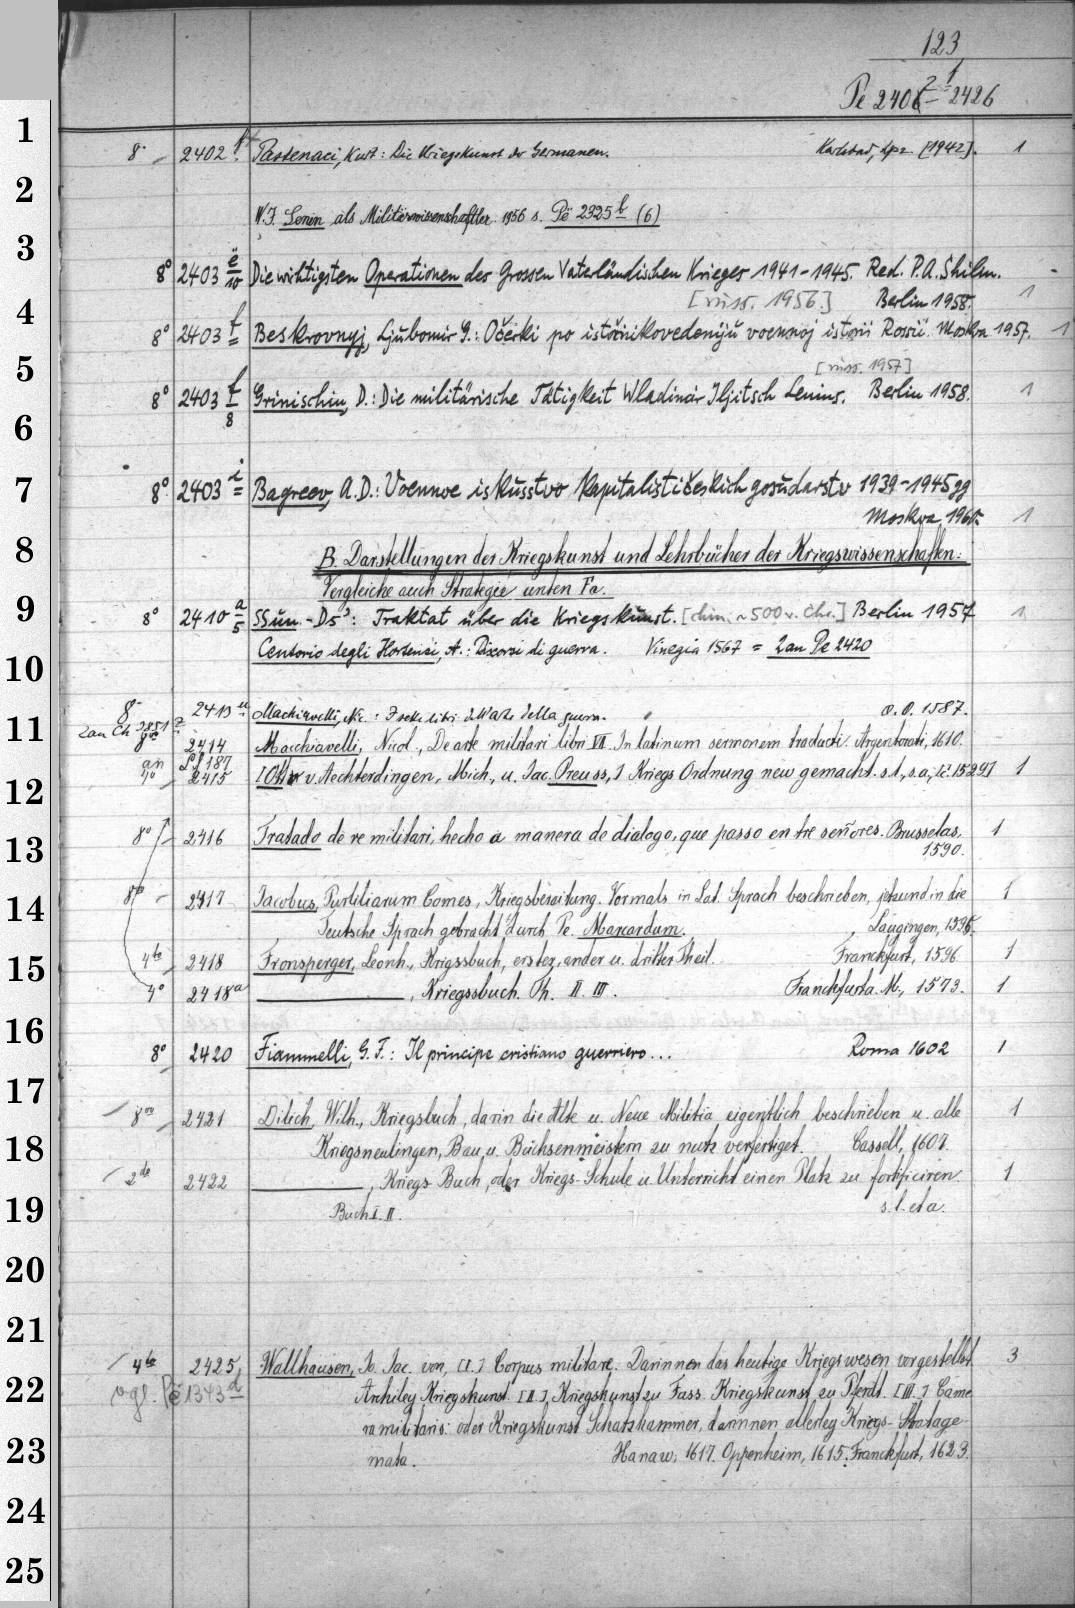 123
Pe 2402 f - 2426
1
8° 2402 ft Pastenaci, Kurt: Die Kriegskunst der Germanen. Karlsbad, Lpz. [1942]. 1
2
W.I. Lenin als Militärwissenschaftler. 1956 s. Pë 2325 f (6)
3
8° 2403 ë/10 Die wichtigsten Operationen des Grossen Vaterländischen Krieges 1941-1945. Red. P.A. Shilin.
[russ. 1956.] Berlin 1958. 1
4
8° 2403 f Beskrovnyj, Ljubomir G.: Očerki po istočnikovedeniju voennoj istorii Rossii. Moskva 1957. 1
5
[russ. 1957]
8° 2403 f/8 Grinischin, D.: Die militärische Tätigkeit Wladimir Iljitsch Lenins. Berlin 1958. 1
6
7
8° 2403 i Bagreev, A.D.: Voennoe iskusstvo kapitalističeskich gosudarstv 1939-1945 gg
Moskva 1960. 1
8
B. Darstellungen der Kriegskunst und Lehrbücher der Kriegswissenschaften:
Vergleiche auch Strategie unten Fa.
9
8° 2410 a/5 Ssun-Ds': Traktat über die Kriegskunst. [chin. ~500 v. Chr.] Berlin 1957 1
10
Centorio degli Hortensi, A.: Discorsi di guerra. Vinegia 1567 = 2 an Pe 2420
8° 2413 a Machiavelli, Nic.: I sette libri dell'arte della guerra. o. O. 1587.
11
2 an Ch 3851
8vo 2414 Macchiavelli, Nicol., De arte militari libri VII. In latinum sermonem traducti. Argentorati, 1610.
an Lf 187
4° 2415 [Ott v. Aechterdingen, Mich., u. Jac. Preuss,] Kriegs Ordnung new gemacht. s.l., s.a., [c. 1529] 1
12
8° 2416 Tratado de re militari, hecho a manera de dialogo, que passo entre señores. Brusselas, 1
13
1590.
8vo 2417 Jacobus, Purliliarum Comes, Kriegsbereitung. Vormals in Lat. Sprach beschrieben, jetzund in die 1
14
Teutsche Sprach gebracht durch Pe. Marcardum. Laugingen, 1595.
4to 2418 Fronsperger, Leonh., Krigssbuch, erster, ander u. dritter Theil. Franckfurt, 1596 1
15
4° 2418a ————, Kriegssbuch. Th. II. III. Franckfurt a. M., 1573. 1
16
8° 2420 Fiammelli, G.F.: Il principe cristiano guerriero... Roma 1602 1
17
8vo 2421 Dilich, Wilh., Kriegsbuch, darin die Alte u. Neue Militia eigentlich beschrieben u. alle 1
18
Kriegsneulingen, Bau u. Büchsenmeistern zu nutz verfertiget. Cassell, 1607.
2do 2422 ————, Kriegs-Buch, oder Kriegs-Schule u. Unterricht einen Platz zu fortificiren. 1
19
Buch I. II. s. l. et a.
20
21
4to 2425 Wallhausen, Jo. Jac. von, [I.] Corpus militare. Darinnen das heutige Kriegswesen vorgestellet. 3
22
vgl. Pë 1343 d Archiley Kriegskunst. [II.] Kriegskunst zu Fuss. Kriegskunst zu Pferdt. [III.] Came
ra militaris: oder Kriegskunst Schatzkammer, darinnen allerley Kriegs-Stratage
23
mata. Hanaw, 1617. Oppenheim, 1615. Franckfurt, 1623.
24
25